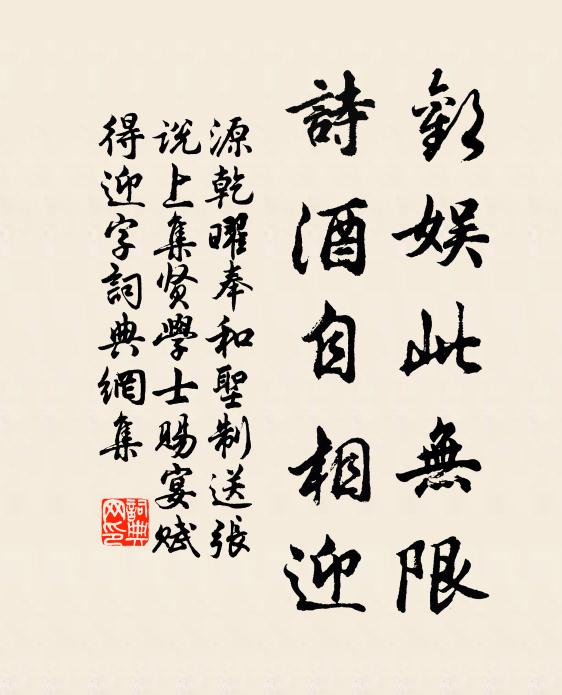 歡娱此無限
詩酒自相迎
源乾曜奉和聖制送張
说上集贤學士賜宴赋
得迎字詞典網集
詞典网印